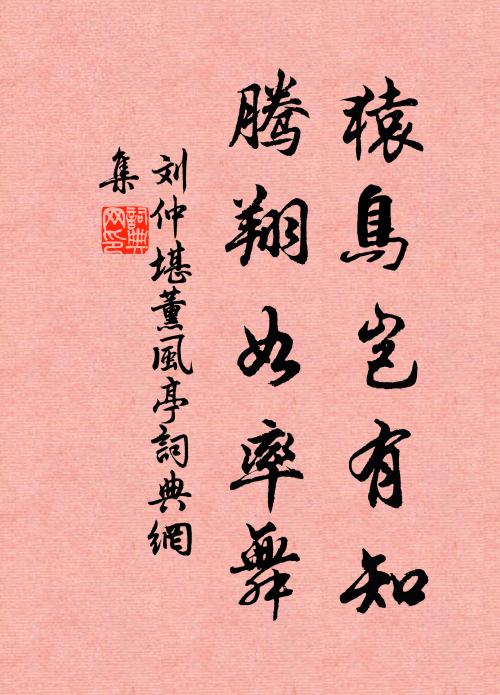 猿鳥岂有知
腾翔如率舞
刘仲堪薰風亭詞典網
集
詞典
网印